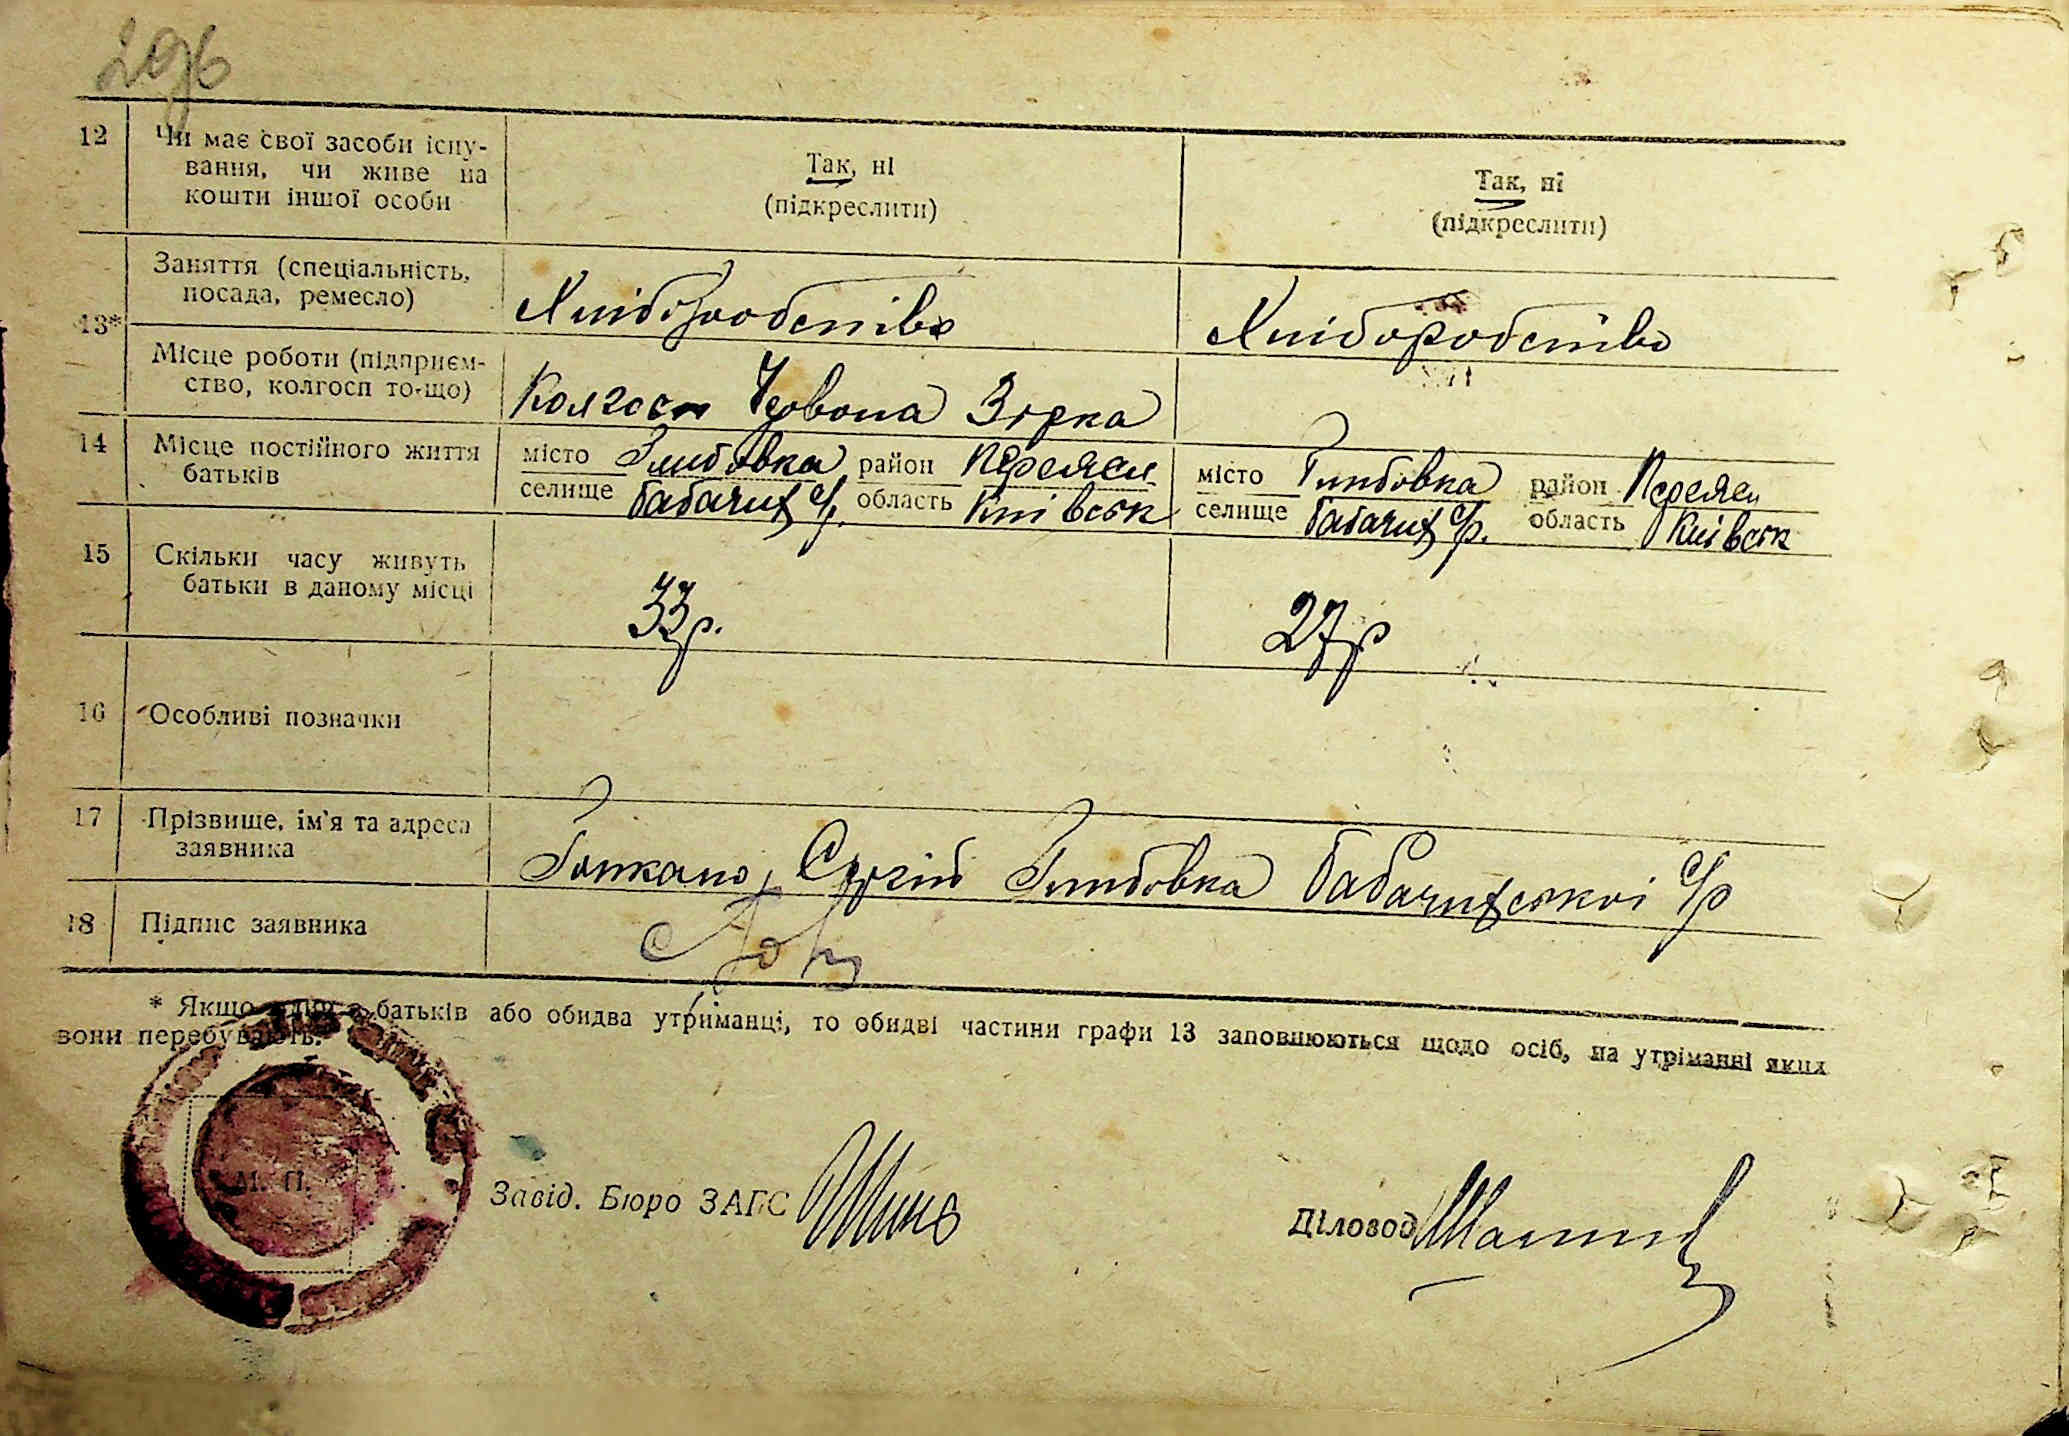 296
12 Чи має свої засоби існу-
вання, чи живе на
кошти іншої особи
Так, ні
(підкреслити)
Так, ні
(підкреслити)
13*
Заняття (спеціальність,
посада, ремесло)
Хліборобство
Хліборобство
Місце роботи (підприєм-
ство, колгосп то-що)
Колгосп Червона Зірка
14 Місце постійного життя
батьків
місто Глибовка район Переясл
селище Бабачих с/р. область Київськ
місто Глибовка район Переясл
селище Бабачих с/р. область Київськ
15 Скільки часу живуть
батьки в даному місці
33р.
27р
16 Особливі позначки
17 Прізвище, ім'я та адреса
заявника
Сергій Глибовка Бабачихської с/р
18 Підпис заявника
* Якщо один з батьків або обидва утриманці, то обидві частини графи 13 заповнюються щодо осіб, на утріманні яких
вони перебувають.
М. П.
Завід. Бюро ЗАГС
Діловод